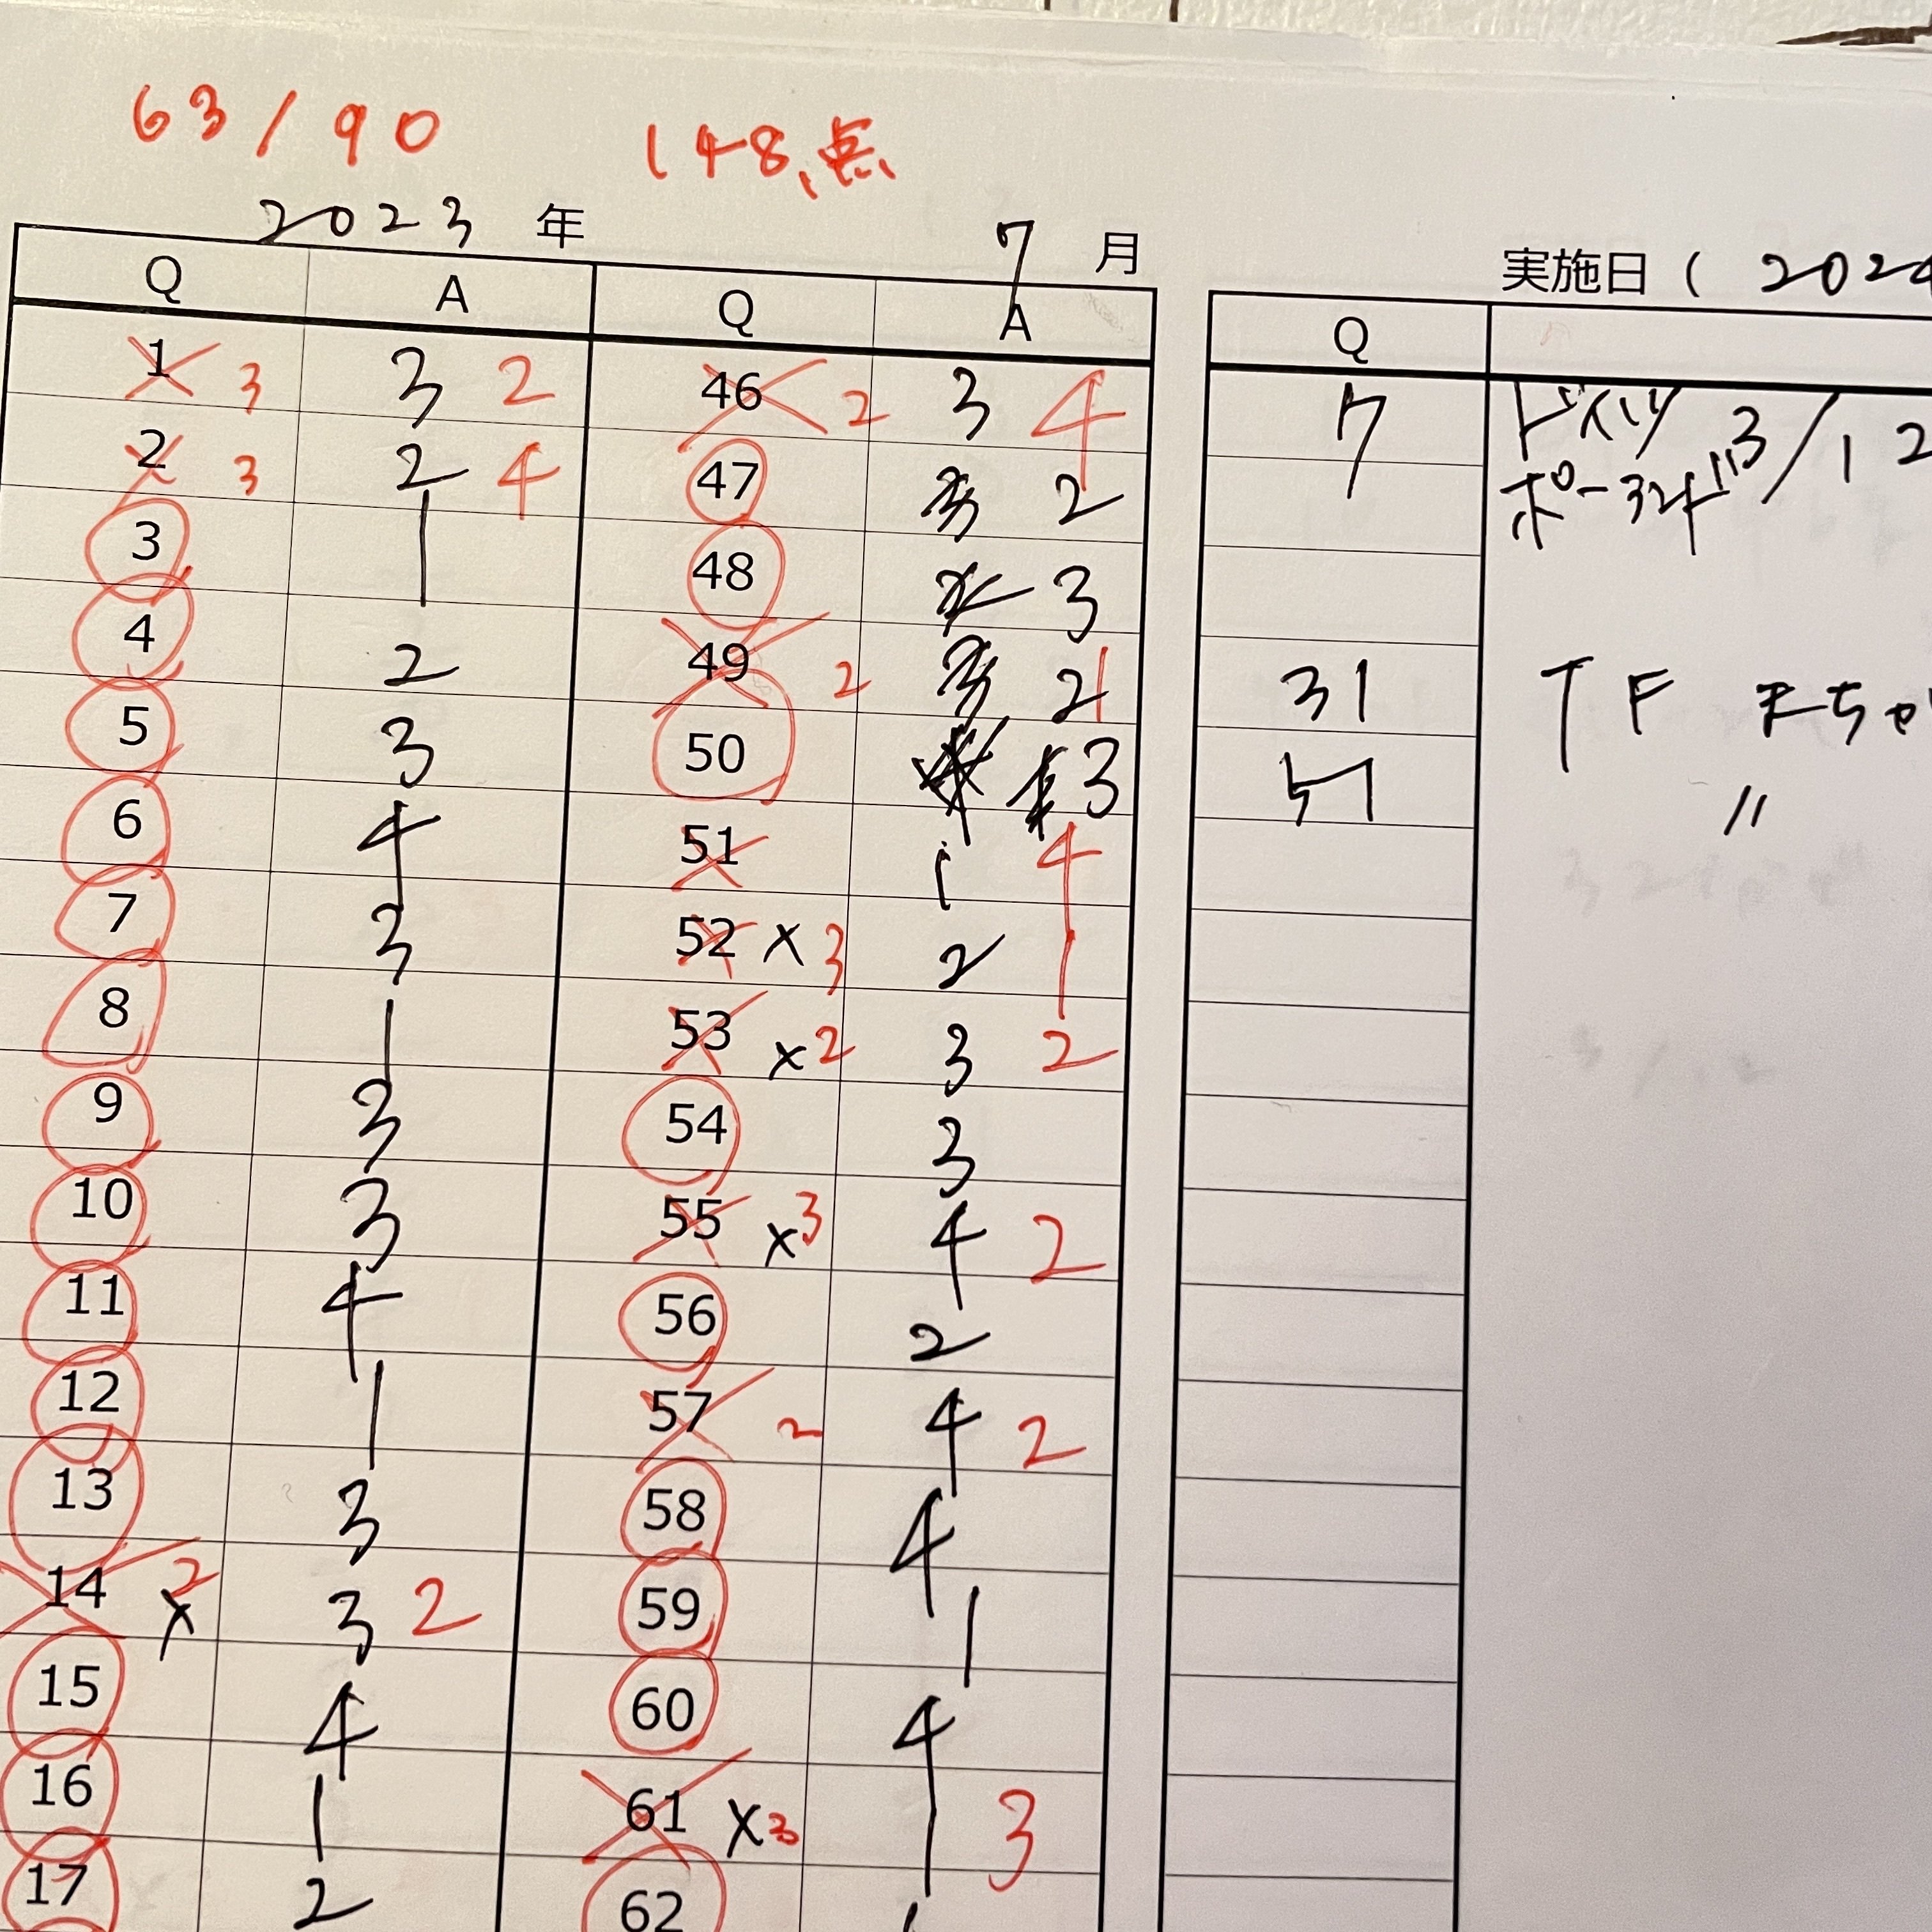 63/90 148点
2023年 7月
実施日( 2024
Q A Q A Q
1 3 3 2 46 2 3 4 7 ドイツ 3/12
2 3 2 4 47 2 ポーランド
3 1 48 3
4 2 49 2 2 1 31 TF まちが
5 3 50 3 51 〃
6 4 51 1 4
7 3 52 × 3 2 1
8 1 53 × 2 3 2
9 3 54 3
10 3 55 × 3 4 2
11 4 56 2
12 1 57 2 4 2
13 3 58 4
14 × 2 3 2 59 1
15 4 60 4
16 1 61 × 3 1 3
17 2 62